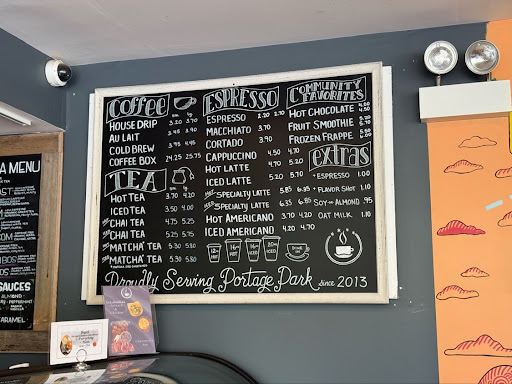 COFFEE
SM. LG
HOUSE DRIP 3.20 3.70
AU LAIT 3.45 3.90
COLD BREW 3.95 4.45
COFFEE BOX 24.25 25.75
TEA
HOT TEA 3.70 4.20
ICED TEA 3.50 4.00
CHAI TEA 4.75 5.25
CHAI TEA 5.25 5.75
MATCHA TEA 5.30 5.80
MATCHA TEA 5.30 5.80
ESPRESSO
ESPRESSO 2.20 2.70
MACCHIATO 3.70
CORTADO 3.90
CAPPUCCINO 4.50 4.70
HOT LATTE 4.70 5.20
ICED LATTE 5.20 5.70
SPECIALTY LATTE 5.85 6.35
SPECIALTY LATTE 6.35 6.85
HOT AMERICANO 3.70 4.20
ICED AMERICANO 4.20 4.70
12oz HOT
16oz HOT
16oz ICED
20oz ICED
COMMUNITY FAVORITES
HOT CHOCOLATE 4.00 4.50
FRUIT SMOOTHIE
FROZEN FRAPPE
extras
+ESPRESSO 1.10
+FLAVOR SHOT 1.10
SOY or ALMOND .95
OAT MILK 1.10
Proudly Serving Portage Park since 2013
MENU
SAUCES
ALMOND
CARAMEL